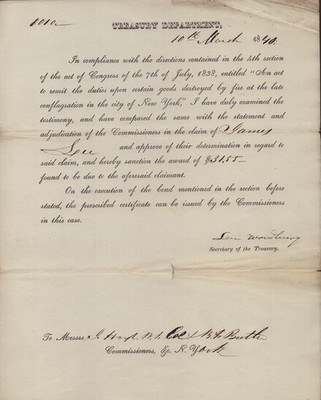 1010
TREASURY DEPARTMENT,
10th March 1840.
In compliance with the directions contained in the 5th section
of the act of Congress of the 7th of July, 1838, entitled "An act
to remit the duties upon certain goods destroyed by fire at the late
conflagration in the city of New York," I have duly examined the
testimony, and have compared the same with the statement and
adjudication of the Commissioners in the claim of James
Lee and approve of their determination in regard to
said claim, and hereby sanction the award of $31.55
found to be due to the aforesaid claimant.
On the execution of the bond mentioned in the section before
stated, the prescribed certificate can be issued by the Commissioners
in this case.
Levi Woodbury
Secretary of the Treasury.
To Messrs J. Hoyt & B. F. Butler
Commissioners, &c N. York